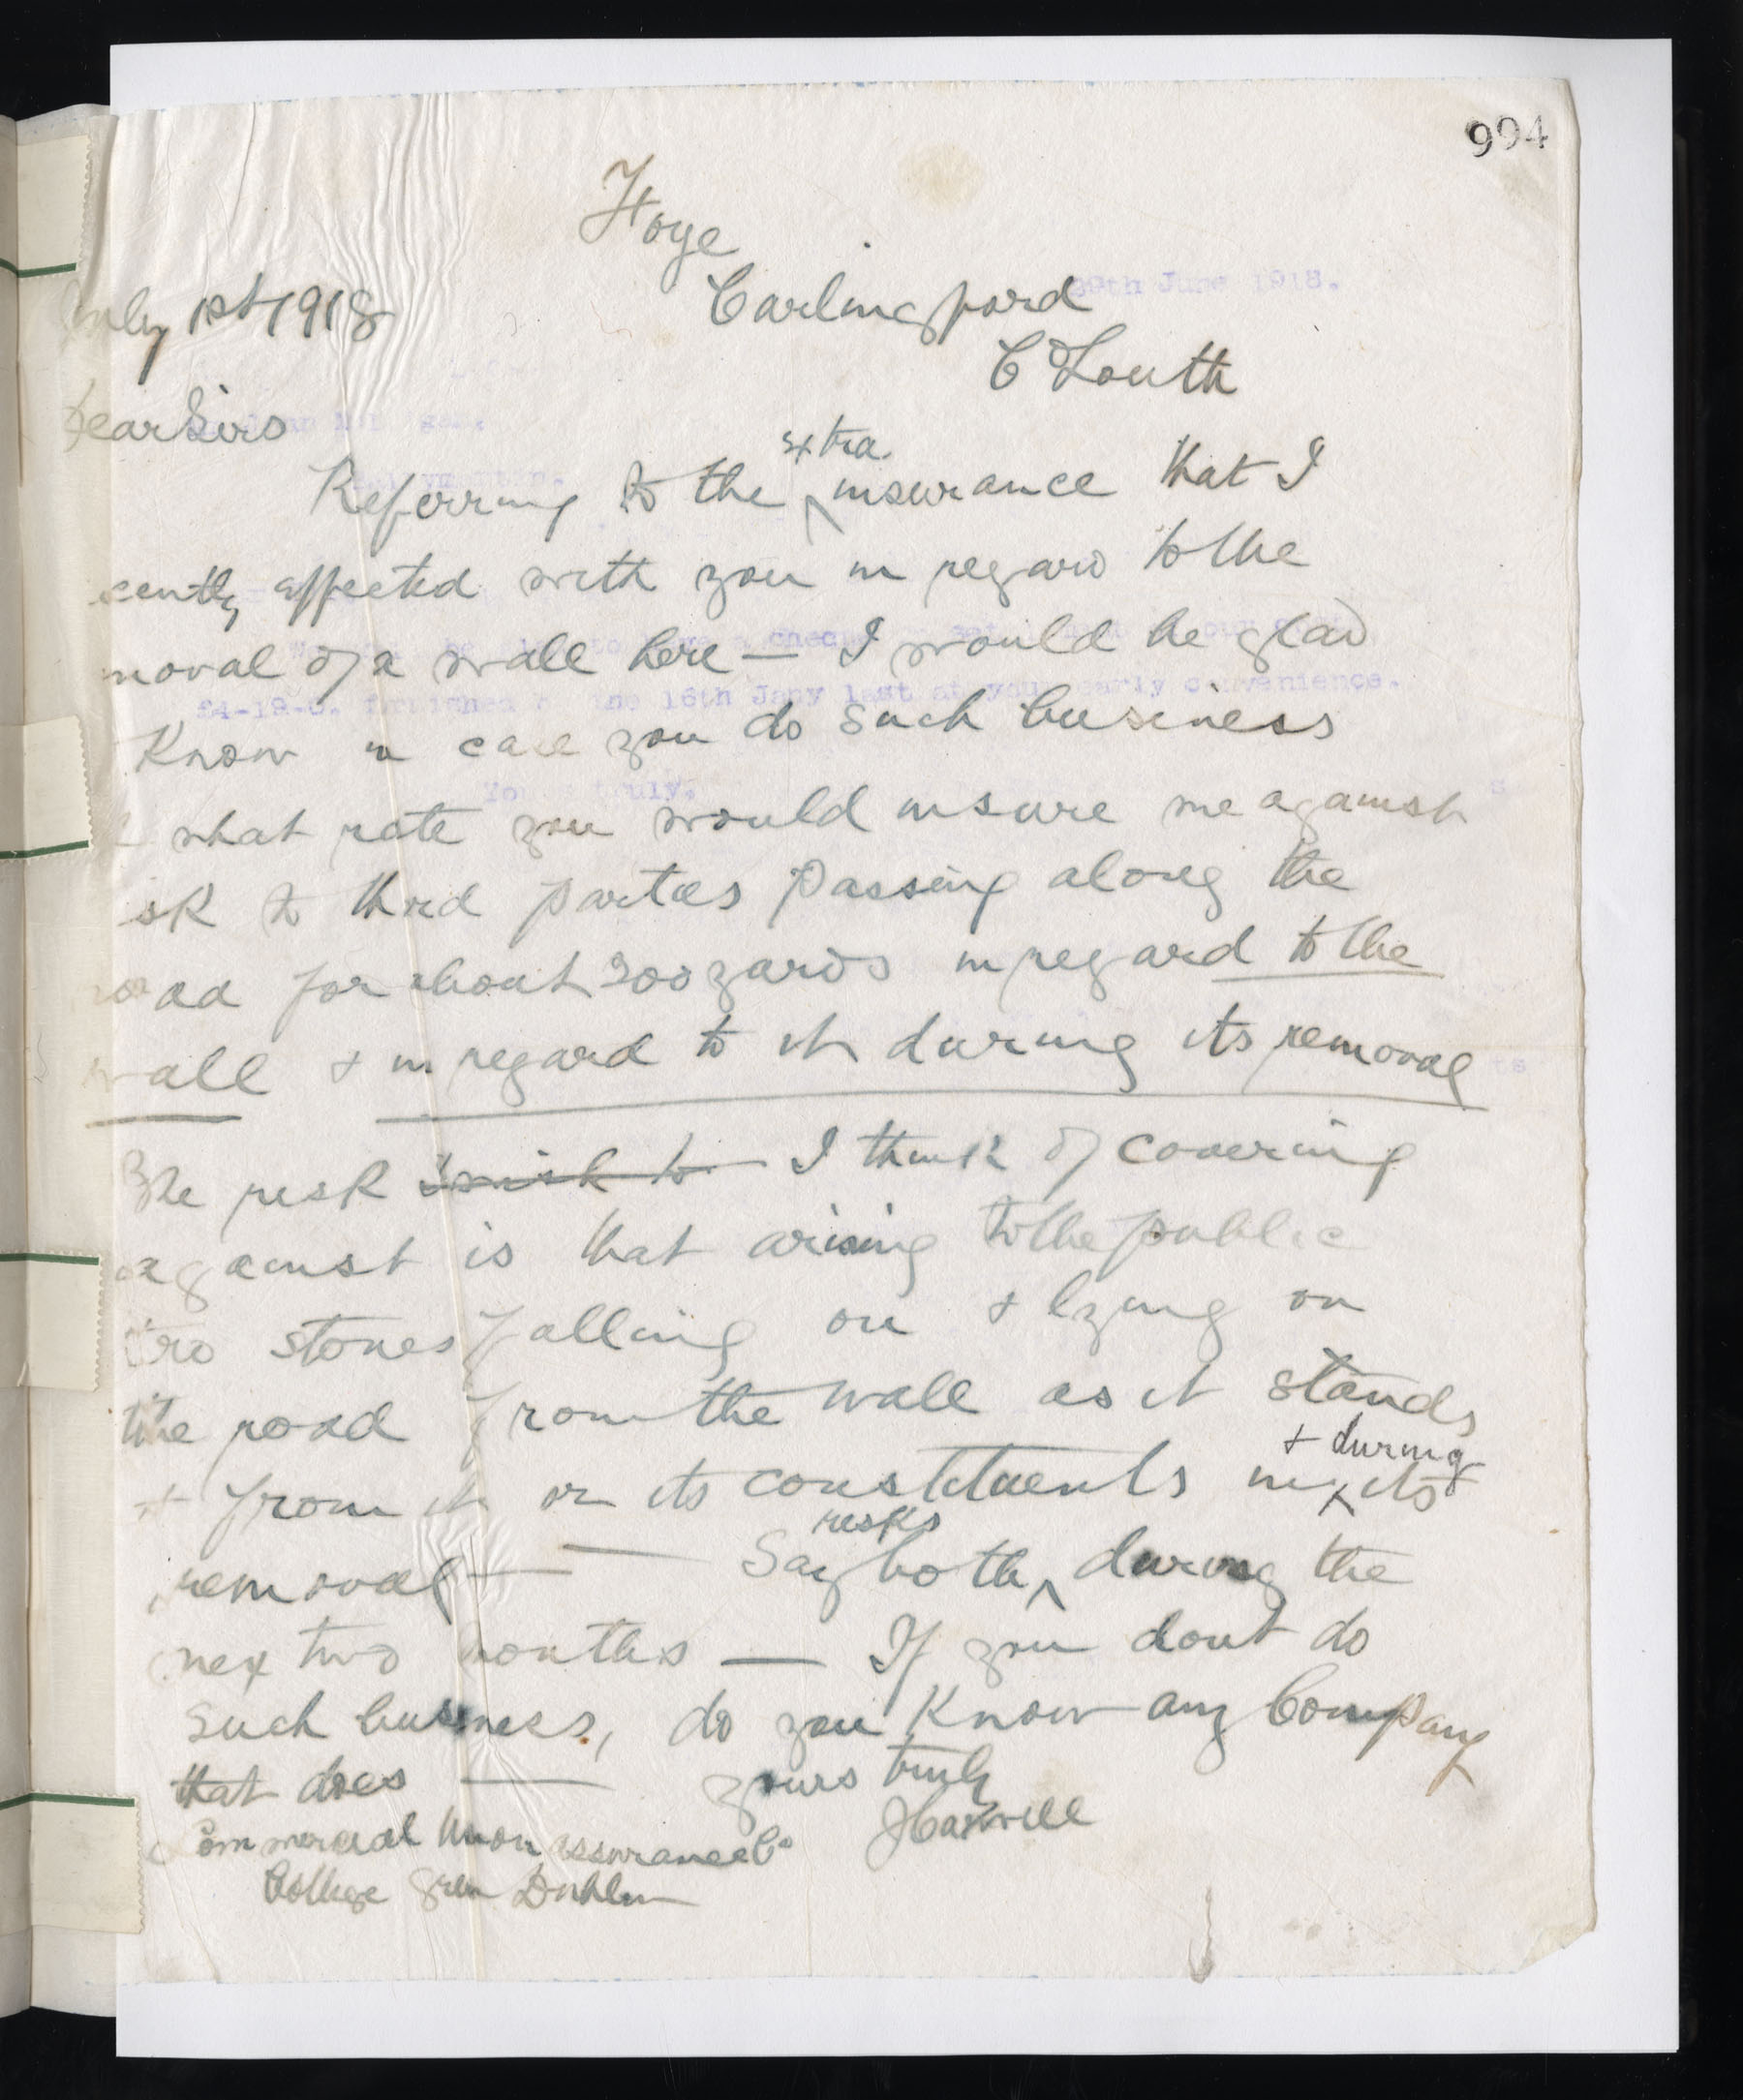 994
Foye
Carlingford
July 1st 1918
Co Louth
Dear Sirs
extra
Referring to the insurance that I
cently affected with you in regard to the
moval of a wall here — I would be glad
Know in case you do such business
what rate you would insure me against
isk to third parties passing along the
road for about 300 yards in regard to the
wall & in regard to it during its removal
The risk I wish to I think of covering
against is that arising to the public
stones falling on & lying on
the road from the wall as it stands
& during
& from it or its constituents in its
risks
removal — Say both during the
next two months — If you dont do
such business, do you know any Company
that does — yours truly
Commercial Union Assurance Co
College Green Dublin
29th June 1918.
16th Jany last at your early convenience.